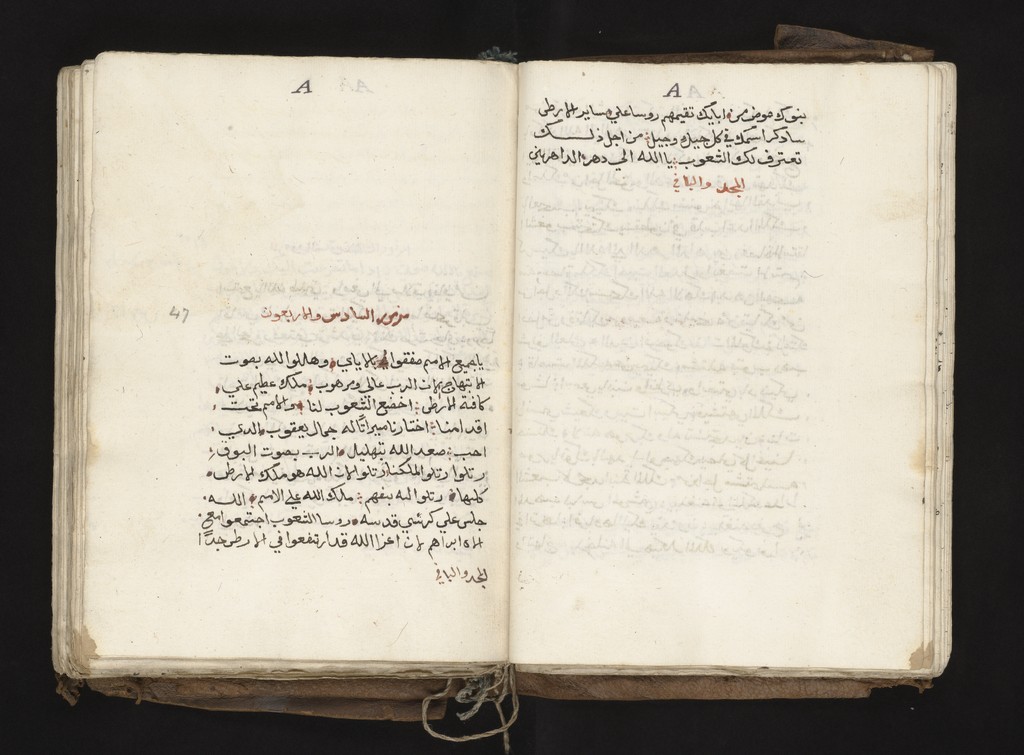 A A
بنوك عوض من ابايك تقيمهم روسا علي ساير الارض
ساذكر اسمك في كل جيل وجيل من اجل ذلك
تعترف لك الشعوب يا الله الي دهر الداهرين
المجد والباقي
A
47
مزمور السادس والاربعون
يا جميع الامم صفقوا بالايادي وهللوا لله بصوت
الابتهاج لان الرب عالي ومرهوب ملك عظيم علي
كافة الارض اخضع الشعوب لنا والامم تحت
اقدامنا اختارنا ميراثا له جمال يعقوب الذي
احب صعد الله بتهليل والرب بصوت البوق
رتلوا رتلوا لملكنا رتلوا لان الله هو ملك الارض
كلها رتلوا له بفهم ملك الله علي الامم الله
جلس علي كرسي قدسه روسا الشعوب اجتمعوا مع
الاه ابراهيم لان اعزا الله قد ارتفعوا في الارض جدا
المجد والباقي